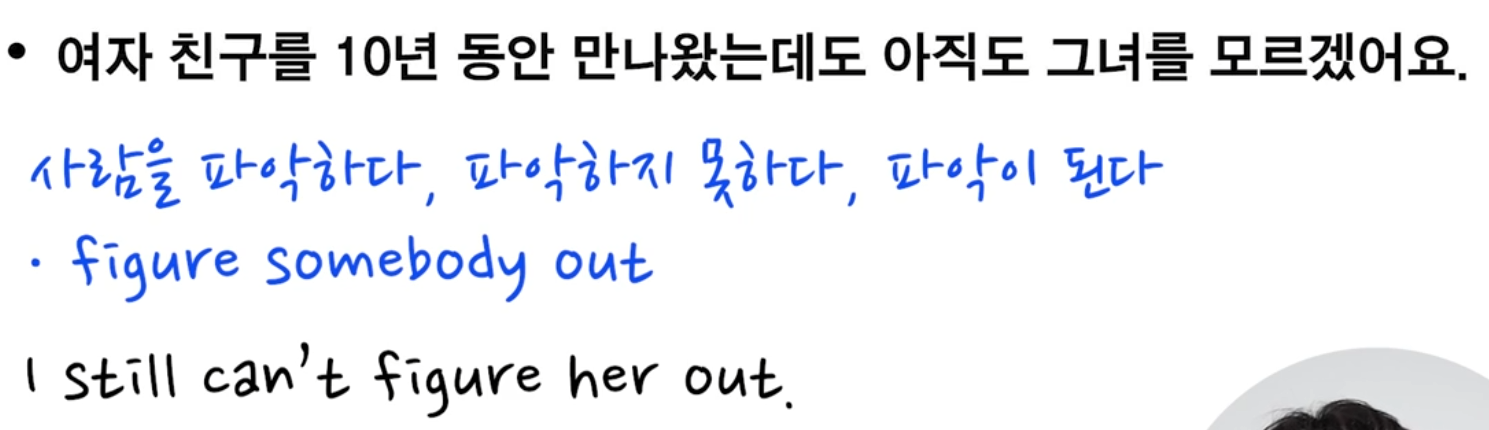 • 여자 친구를 10년 동안 만나왔는데도 아직도 그녀를 모르겠어요.
사람을 파악하다, 파악하지 못하다, 파악이 된다
· figure somebody out
I still can't figure her out.